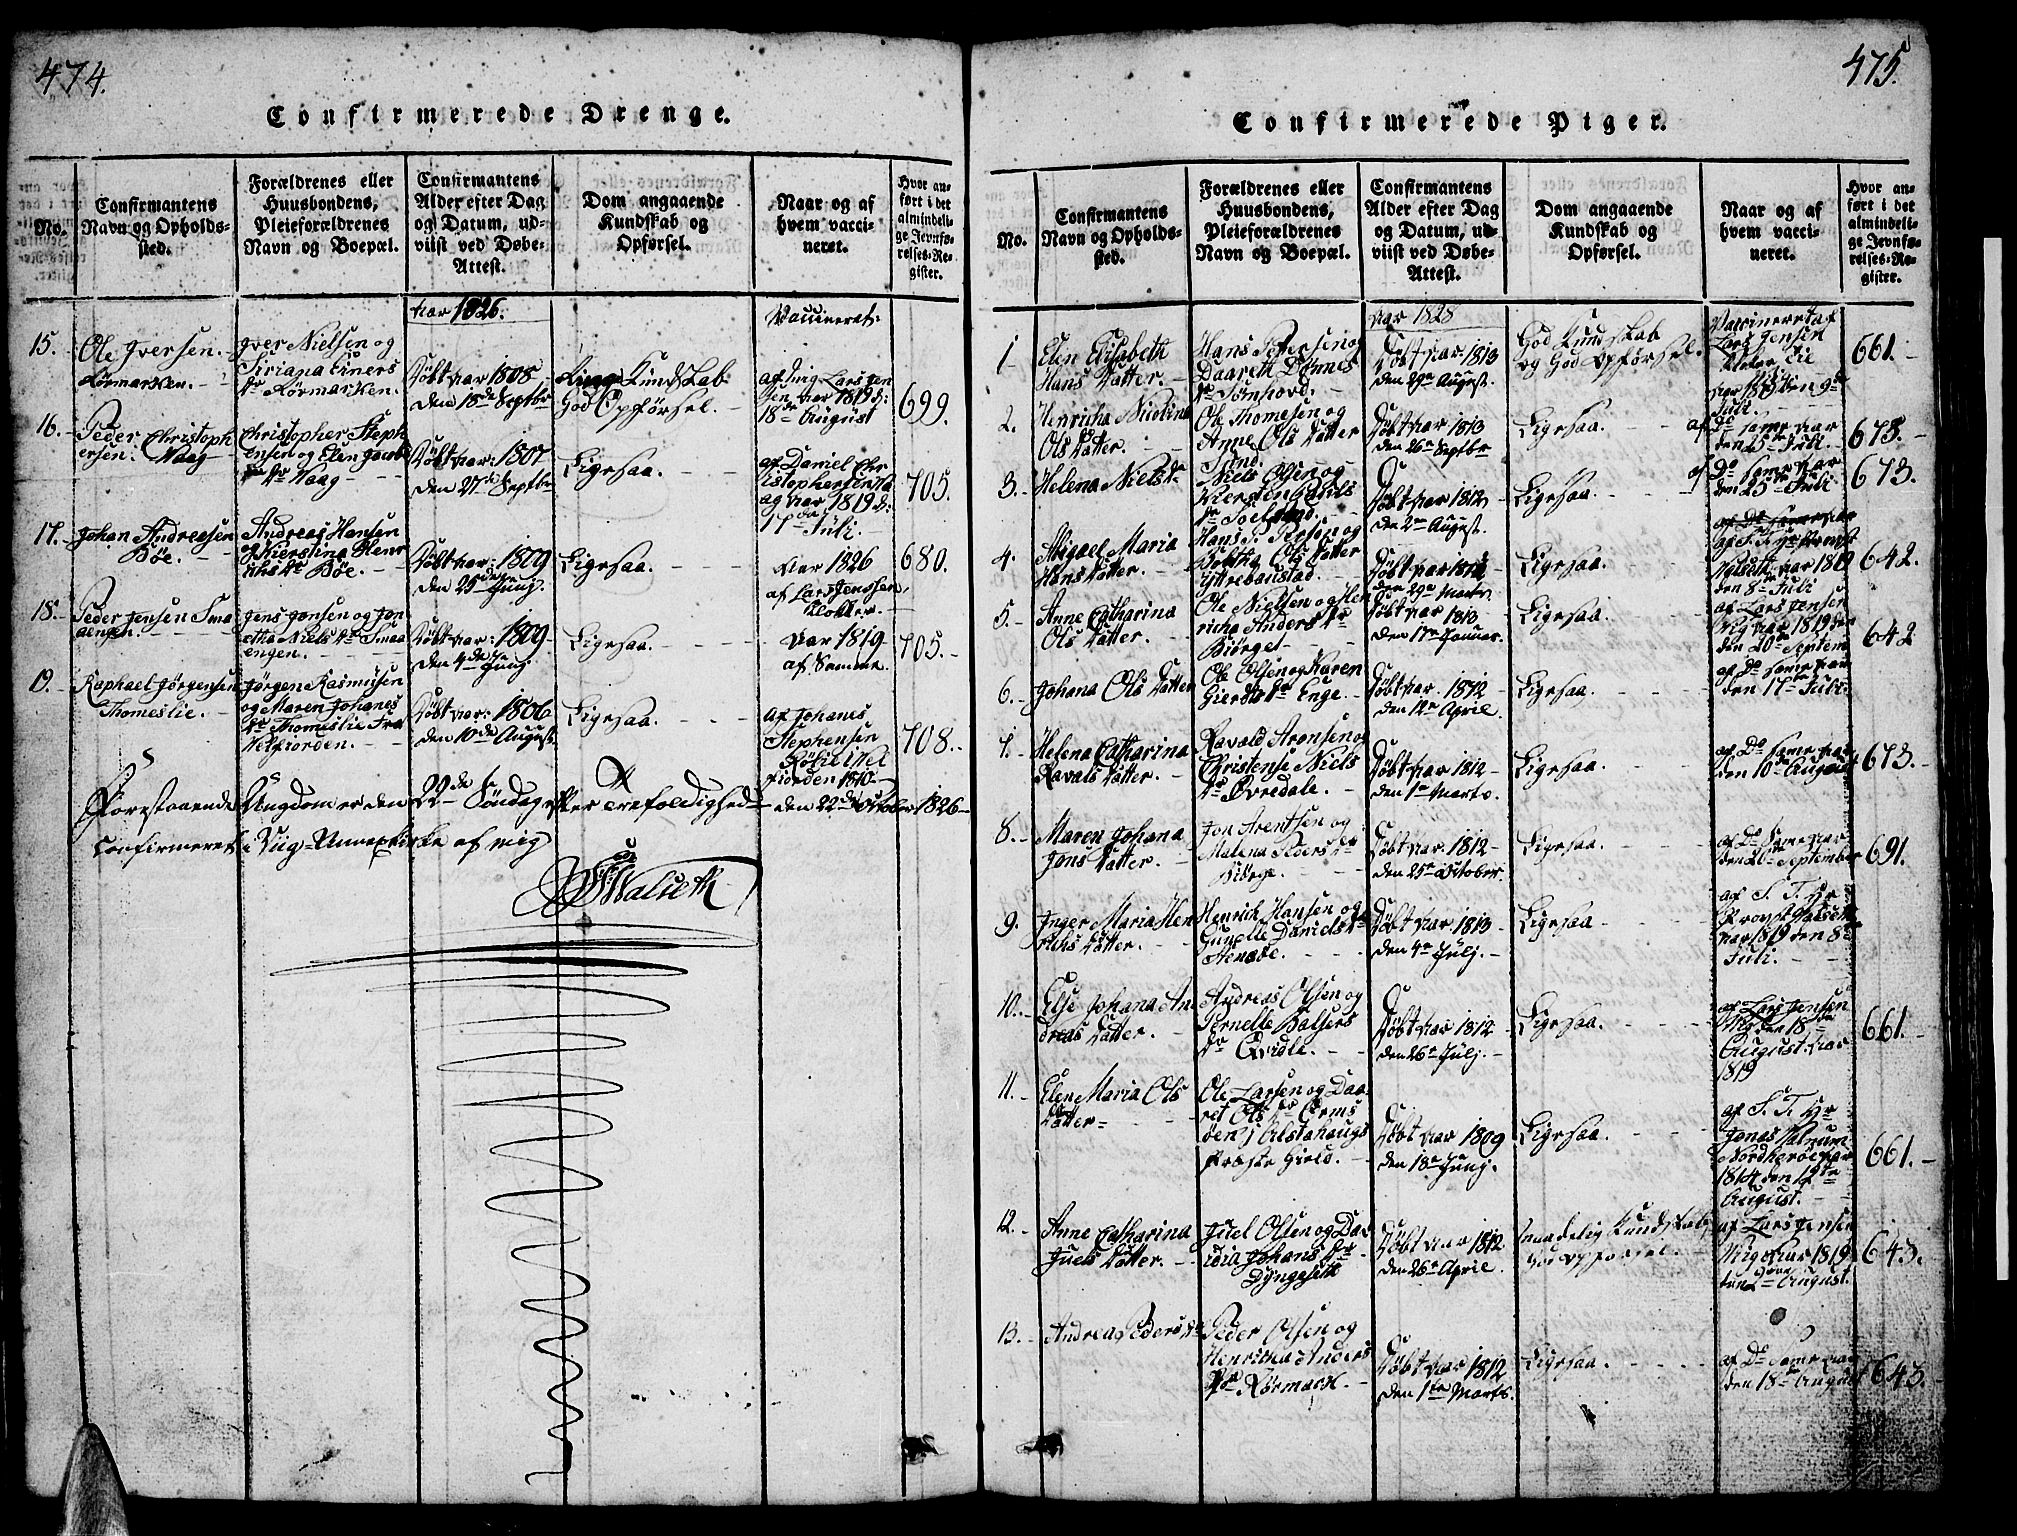 474.
Confirmerede Drenge.
No.
Confirmantens
Navn og Opholds-
sted.
Forældrenes eller
Huusbondens,
Pleieforældrenes
Navn og Boepæl.
Confirmantens
Alder efter Dag
og Datum, ud-
viist ved Døbe-
Attest.
Dom angaaende
Kundskab og
Opførsel.
Naar og af
hvem vacci-
neret.
Hvor an-
ført i det
almindeli-
ge Jevnfø-
relses-Re-
gister.
Aar 1826.
Vaccineret:
15.
Ole Iversen.
Kørmarken.
Iver Nielsen og
Siriana Einers
Dr Kørmarken.
Døbt Aar 1808
den 18de Septbr
Kundskab
God Opførsel.
af Jug Lars Jen
sen Aar 1819 d:
18de August
699.
16.
Peder Christoph
ersen. Waag
Christopher Steph
ensen og Elen Jacob
Dr Waag
Døbt Aar: 1807
den 27de Septbr
Ligesaa.
af Daniel Chr
istophersen Wa
ag Aar 1819 d:
17de Juli.
705.
17.
Johan Andreesen
Bøe.
Andreas Hansen
og Kierstina Henr
ichs Dr Bøe.
Døbt Aar: 1809
den 25de Junj.
Ligesaa.
Aar 1826
af Lars Jenssen
Klokker.
680.
18.
Peder Jensen Sma
aengen.
Jens Jensen og Jon
etha Niels Dr Smaa
engen.
Døbt Aar: 1809
den 4de Junj
Ligesaa.
Aar 1819
af Samme.
705.
19.
Raphael Jørgensen
Thomeslie.
Jørgen Rasmusen
og Maren Johanes
Dr Thomeslie Fra
Velfiorden.
Døbt Aar: 1806
den 10de August
Ligesaa.
af Johanes
Stephensen
Kølie i Vel
fiorden 1810
708.
Forestaaende Ungdom er den 22de Søndag efter Trefoldighed den 22de October 1826
Confirmeret i Viig-Annexkirke af mig
475.
Confirmerede Piger.
No.
Confirmantens
Navn og Opholds-
sted.
Forældrenes eller
Huusbondens,
Pleieforældrenes
Navn og Boepæl.
Confirmantens
Alder efter Dag
og Datum, ud-
viist ved Døbe-
Attest.
Dom angaaende
Kundskab og
Opførsel.
Naar og af
hvem vacci-
neret.
Hvor an-
ført i det
almindeli-
ge Jevnfø-
relses-Re-
gister.
Aar 1828
1
Elen Elisabeth
Hans Datter.
Hans Pettersen og
Daareth Tønnes
Dr Sømhovd.
Døbt Aar: 1813
den 29de August.
God Kundskab
og God Opførsel.
Vaccineret af
Lars Jensen
661.
2.
Henricha Nicolina
Ols Datter.
Ole Thomesen og
Anne Ols Datter
Sund.
Døbt Aar 1813
den 26de Septbr
Ligesaa.
af Do samme Aar
den 25de Juli
673.
3.
Helena Niels Dr
Niels Olsen og
Døbt Aar: 1812
den 2de August.
Ligesaa.
af Do samme Aar
den 25de Juli
673.
4.
Abigael Maria
Hans Datter.
Ytrebaustad.
den 29de Marts
Ligesaa.
den 8de Juli
642.
5.
Anne Catharina
Ols Datter.
Ole Nielsen og Hen
richa Anders Dr
Biørget
Døbt Aar 1813.
den 17de Januar.
Ligesaa.
af Lars Jensen
Wig Aar 1819 den
den 20de Septem
642
6.
Johana Ols Datter
Ole Olsen og Karen
Gierts Dr Enge.
Døbt Aar. 1812
den 12de April.
Ligesaa.
af Do samme Aar
den 17de Juli
7.
Helena Catharina
Ravals Datter.
Ravald Aronsen og
Christense Niels
Dr Øvredale.
Døbt Aar 1812
den 1de Marts.
Ligesaa.
af Do samme Aar
den 10de August
673.
8.
Maren Johana
Jons Datter.
Jon Arentsen og
Malena Peders Dr
Biørge.
Døbt Aar: 1812
den 25de October.
Ligesaa.
af Do samme Aar
den 26de September
691.
9.
Inger Maria Hen
richs Datter.
Henrich Hansen og
Gunelle Daniels Dr
Stensøe.
Døbt Aar 1813
den 4de Julj.
Ligesaa
af S. T. Hr
Provst Walseth
Aar 1819 den 8de
Juli.
10.
Else Johana An
dreas Datter.
Andreas Olsen og
Pernelle Balsers
Dr Qvidle.
Døbt Aar 1812
den 26de Julj.
Ligesaa.
af Lars Jensen
Wig den 18de
August Aar
1819
661.
11.
Elen Maria Ols
Datter
Ole Larsen og Daa
ret Ols Dr Orms
øen i Alstahaugs
Præste Gield.
Døbt Aar 1809
den 18de Junj.
Ligesaa.
af S. T. Hr
Nordherøe Aar
1814 den 12te
August.
661.
12.
Anne Catharina
Juels Datter.
Juel Olsen og Da
Johans Dr
Dyngeseth
Døbt Aar 1812
den 26de April.
maadelig Kundskab,
God Opførsel.
af Lars Jensen
Wig Aar 1819
den 2den August.
643.
13.
Andrea Peders Dr
Peder Olsen og
Henricha Anders
Dr Kørmark.
Døbt Aar 1812
den 1te Marts.
Ligesaa.
af Do samme Aar
den 18de August
643.